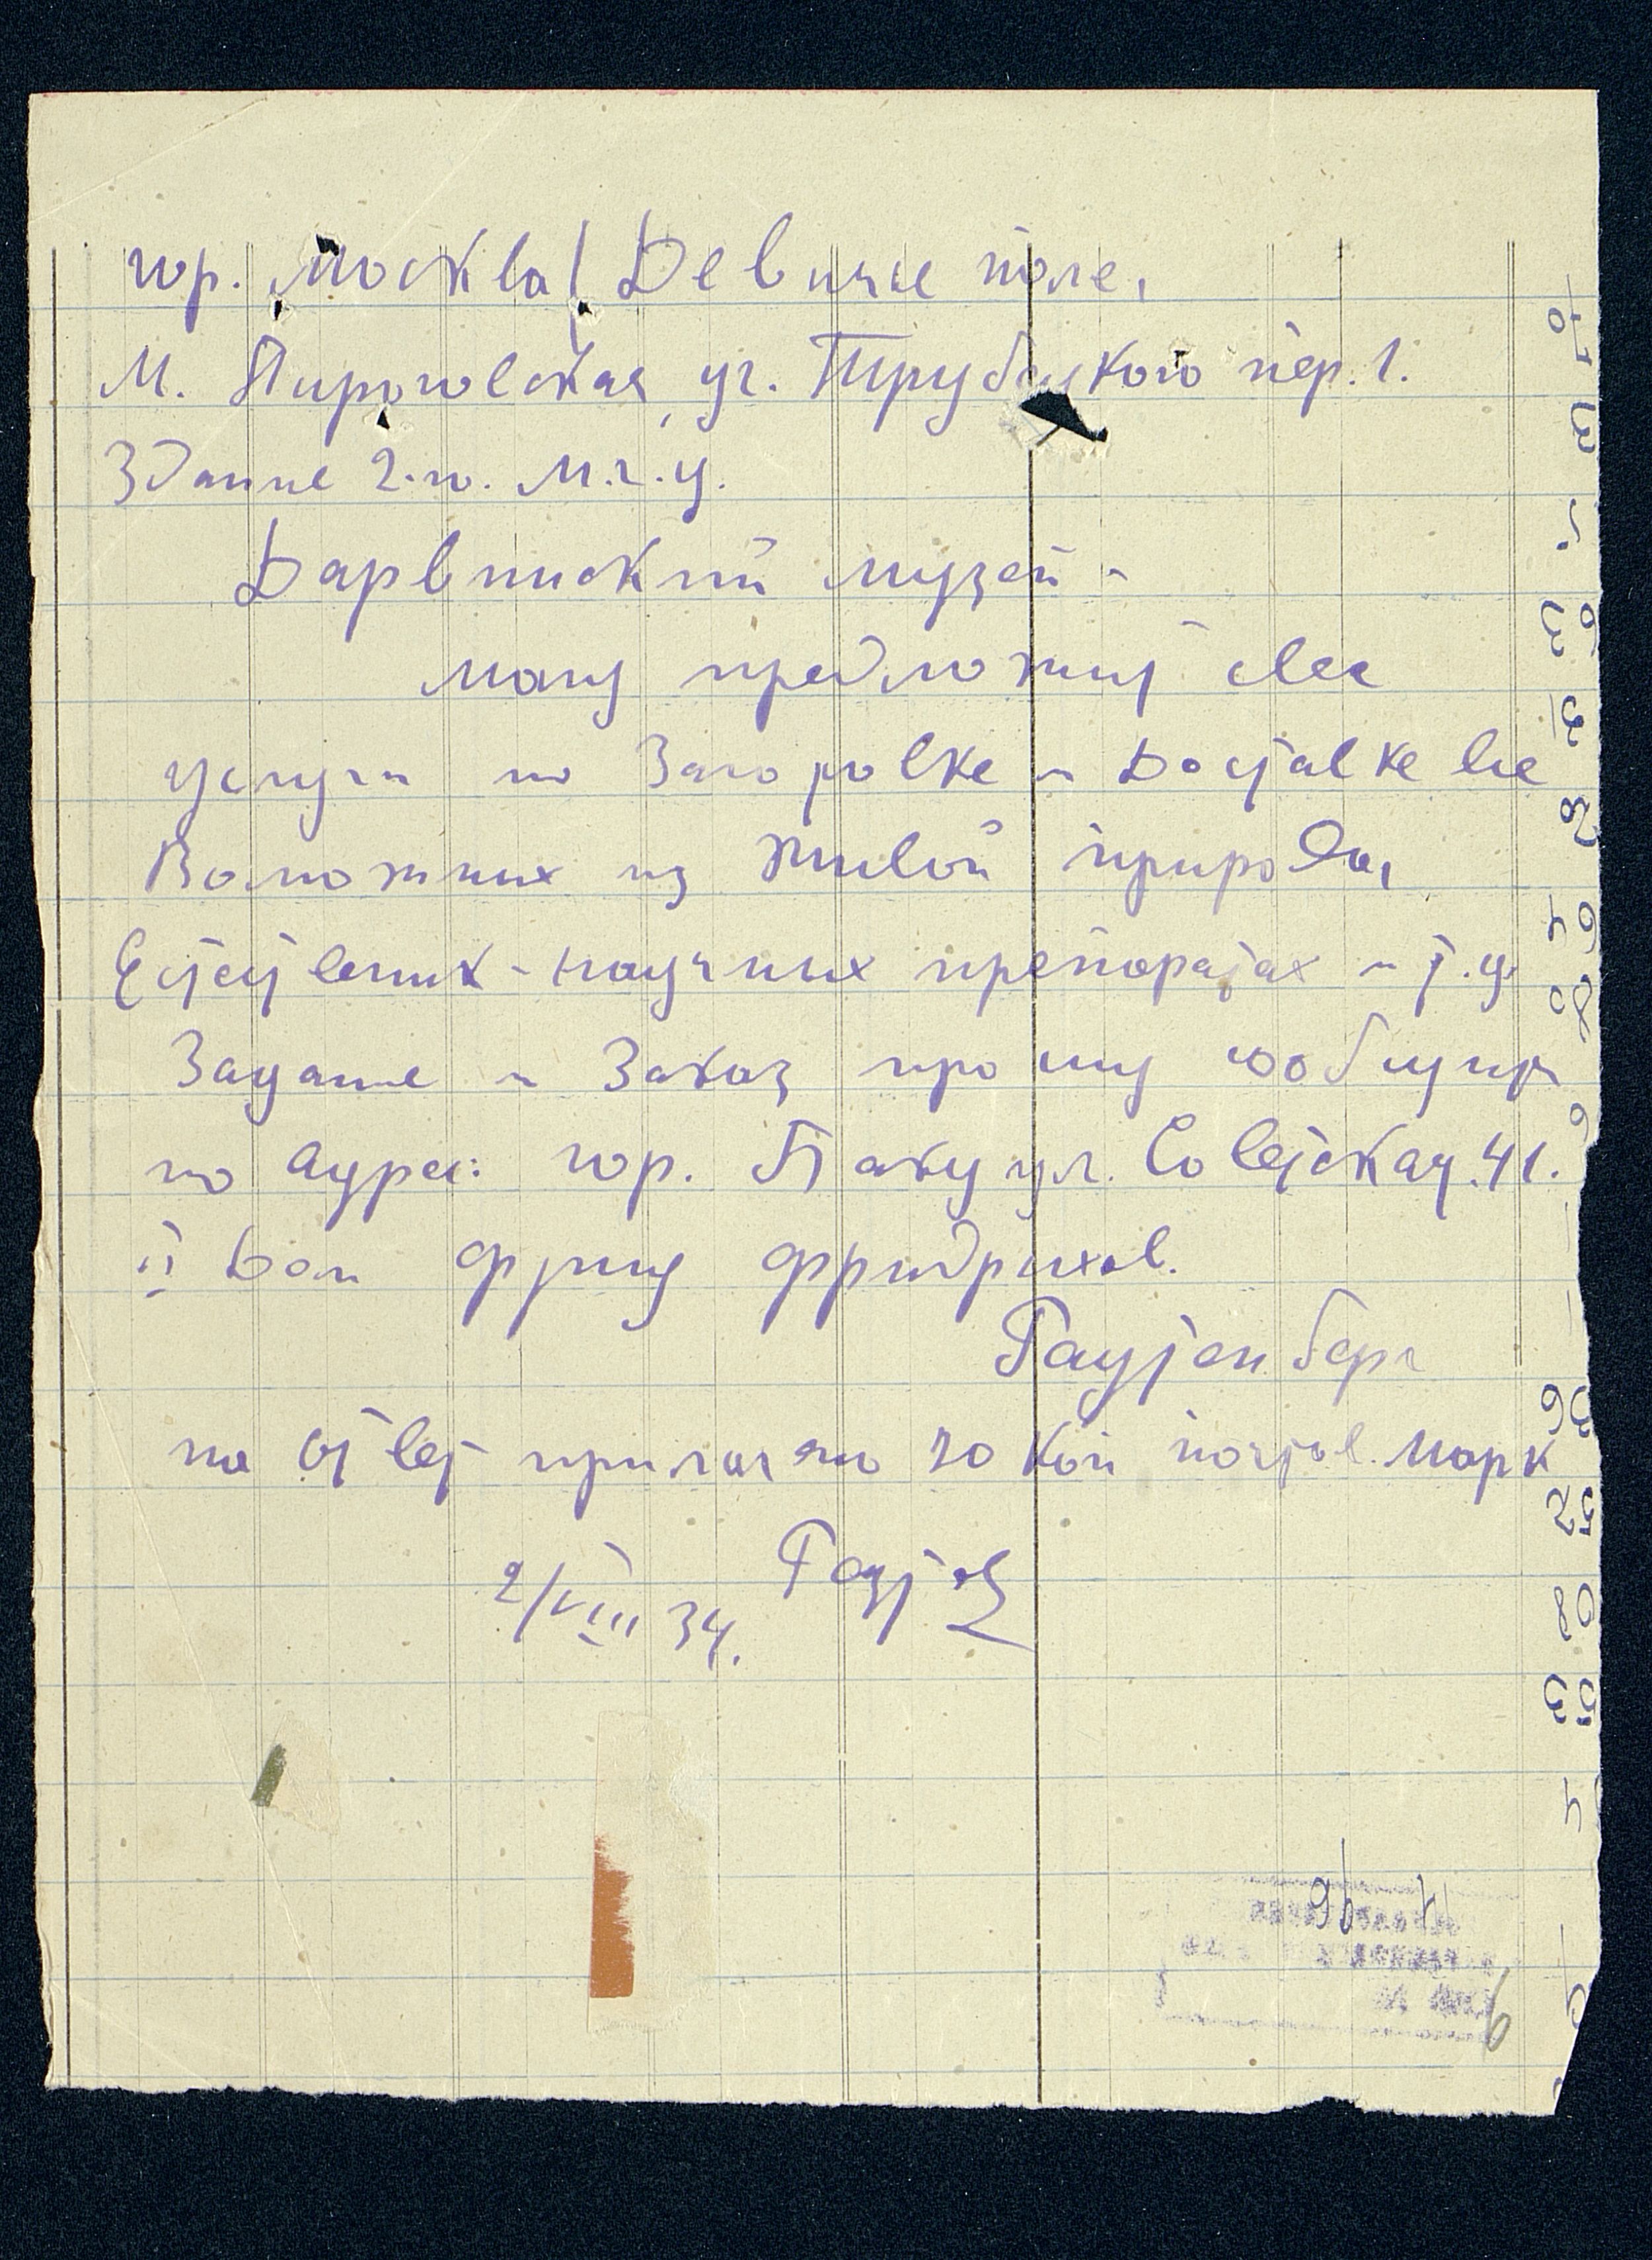 гор. Москва/ Девичье поле,
М. Пироговская, уг. Трубецкого пер. 1.
Здание 2-го. М.Г.У.
Дарвинский музей -
могу предложит свое
услуги по Заготовке и Доставке все
Воможних из живой природы,
Естественних-научних препоратах и т.д.
Задание и Заказ прошу сообщит
по адрес: гор. Баку ул. Советская. 41.
Фриц Фридрихов.
Гаутенберг
на ответ прилагаю 20 коп почтов. марк
2/VIII 34.